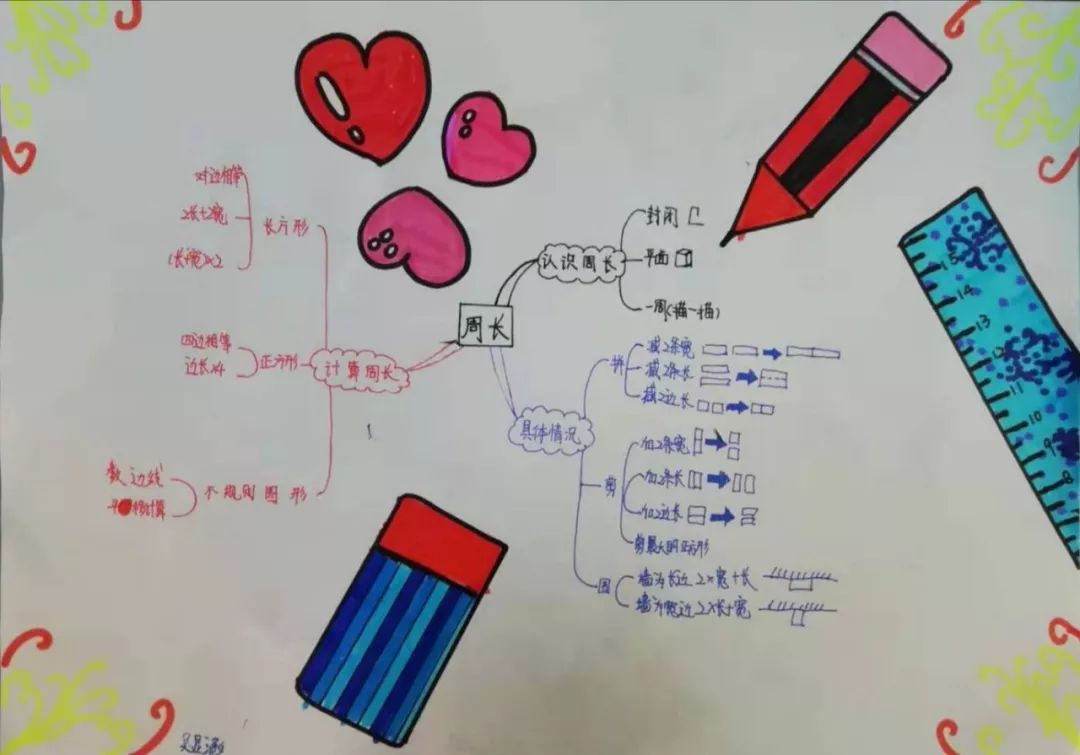 周长
认识周长
封闭
平面
一周(描一描)
计算周长
长方形
对边相等
2长+2宽
(长+宽)×2
正方形
四边相等
边长×4
不规则图形
数边线
具体情况
拼
减2条宽
减2条长
减2边长
剪
加2条宽
加2条长
加2边长
剪最大的正方形
围
墙为长边 2×宽+长
墙为宽边 2×长+宽
15
14
13
12
11
10
9
8